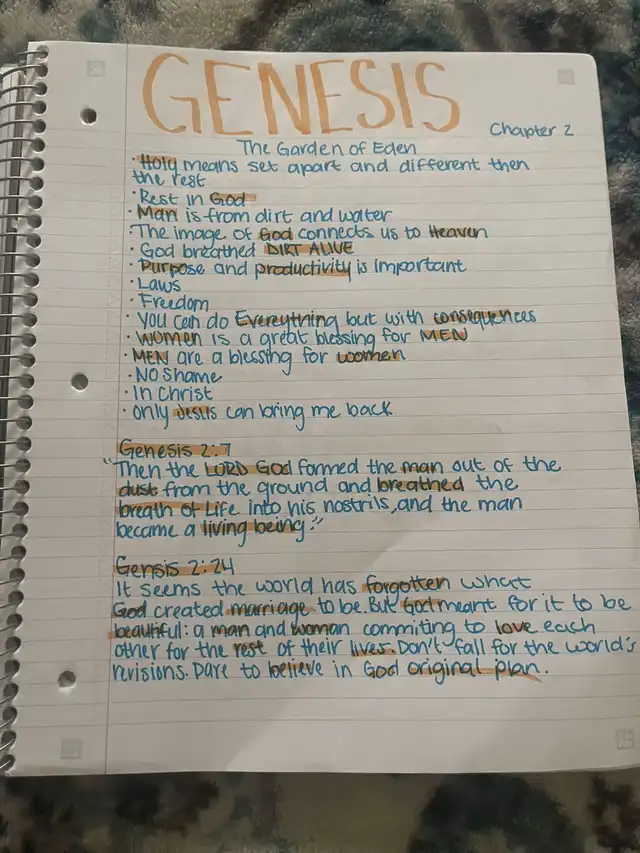 GENESIS
Chapter 2
The Garden of Eden
· Holy means set apart and different then
the rest
· Rest in God
· Man is from dirt and water
· The image of God connects us to Heaven
· God breathed DIRT ALIVE
· Purpose and productivity is important
· Laws
· Freedom
· You can do Everything but with consequences
· WOMEN is a great blessing for MEN
· MEN are a blessing for women
· NO Shame
· In Christ
· Only Jesus can bring me back
Genesis 2:7
"Then the LORD God formed the man out of the
dust from the ground and breathed the
breath of Life into his nostrils, and the man
became a living being."
Gensis 2:24
It seems the world has forgotten what
God created marriage to be. But God meant for it to be
beautiful: a man and woman commiting to love each
other for the rest of their lives. Don't fall for the world's
revisions. Dare to believe in God original plan.